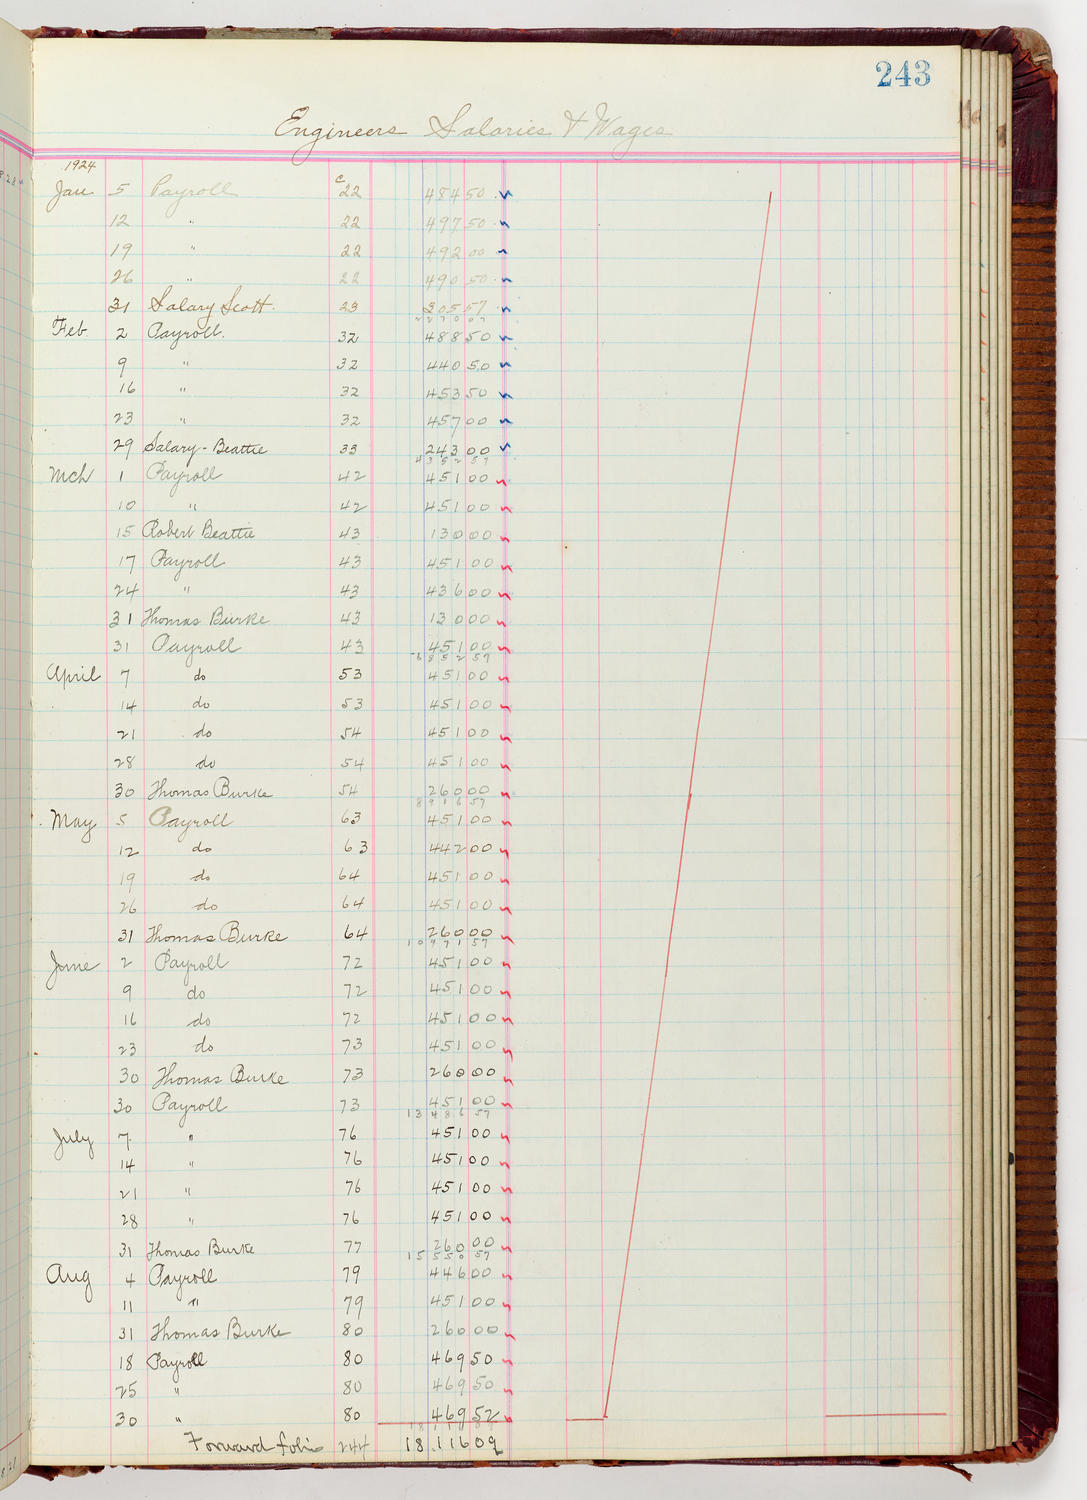 243
Engineers Salaries & Wages
1924
Jan 5 Payroll C 22 484 50
12 " 22 497 50
19 " 22 492 00
26 " 22 490 50
31 Salary Scott. 23 305 57
2270 07
Feb. 2 Payroll. 32 488 50
9 " 32 440 50
16 " 32 453 50
23 " 32 457 00
29 Salary - Beattie 33 243 00
4352 57
Mch 1 Payroll 42 451 00
10 " 42 451 00
15 Robert Beattie 43 130 00
17 Payroll 43 451 00
24 " 43 436 00
31 Thomas Burke 43 130 00
31 Payroll 43 451 00
6852 57
April 7 do 53 451 00
14 do 53 451 00
21 do 54 451 00
28 do 54 451 00
30 Thomas Burke 54 260 00
8916 57
May 5 Payroll 63 451 00
12 do 63 442 00
19 do 64 451 00
26 do 64 451 00
31 Thomas Burke 64 260 00
10971 57
June 2 Payroll 72 451 00
9 do 72 451 00
16 do 72 451 00
23 do 73 451 00
30 Thomas Burke 73 260 00
30 Payroll 73 451 00
13486 57
July 7 " 76 451 00
14 " 76 451 00
21 " 76 451 00
28 " 76 451 00
31 Thomas Burke 77 260 00
15550 57
Aug 4 Payroll 79 446 00
11 " 79 451 00
31 Thomas Burke 80 260 00
18 Payroll 80 469 50
25 " 80 469 50
30 " 80 469 52
Forward folio 244 18 116 09